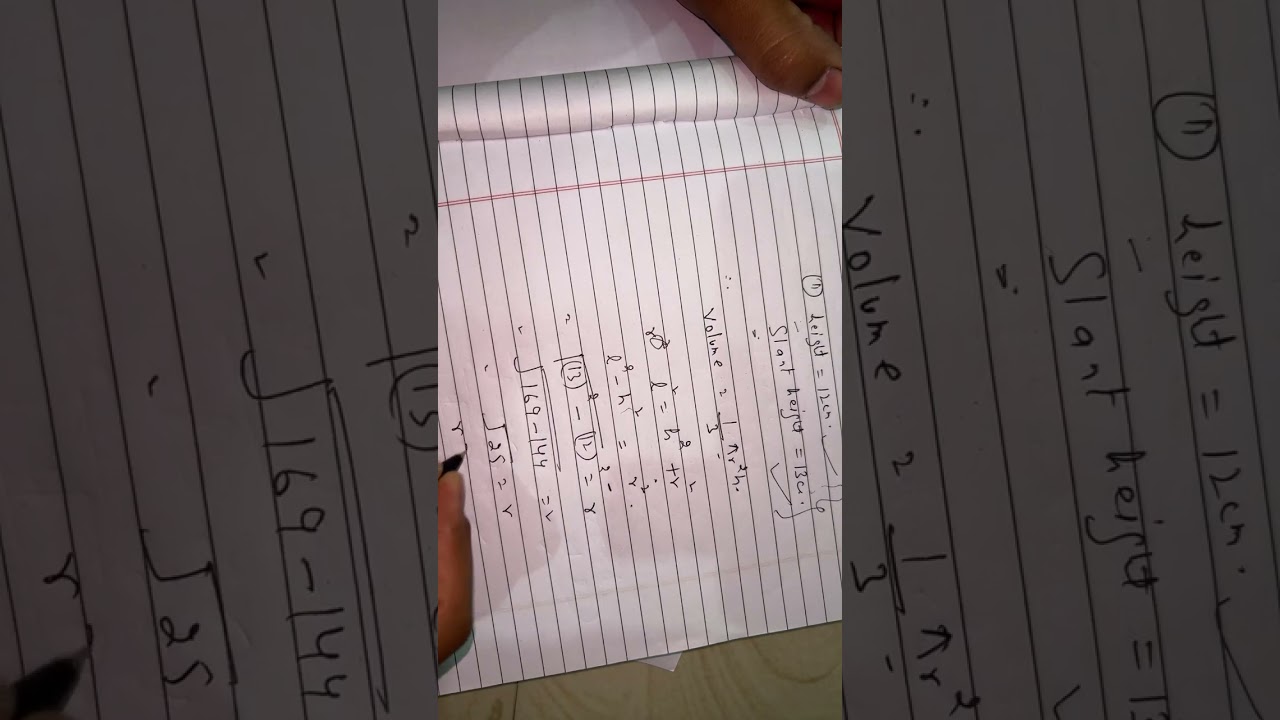 (1) height = 12cm.
Slant height = 13cm.
∴ Volume = 1/3 πr²h.
l² = h² + r²
l² - h² = r².
√(13)² - (12)² = r
√169 - 144 = r
√25 = r
r